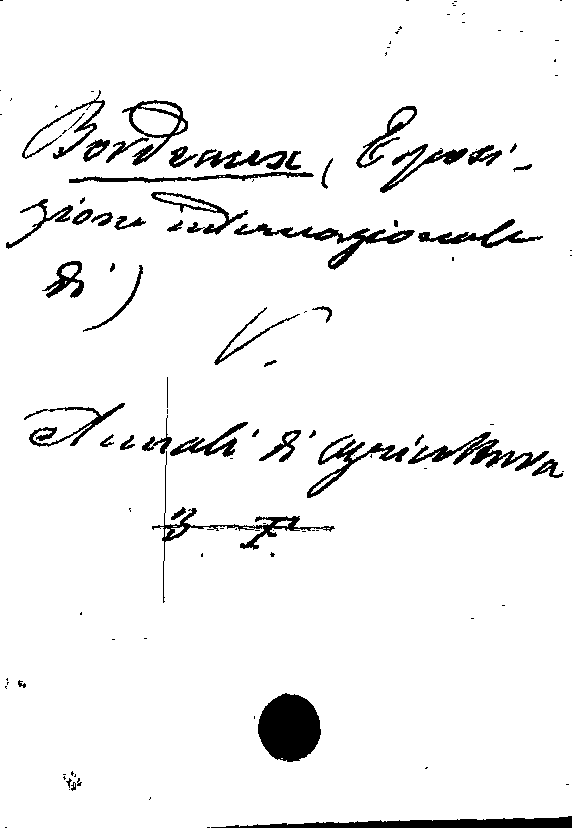 Bordeaux, (Esposi-
zione internazionale
di)
V.
Annali di agricoltura
3. F.